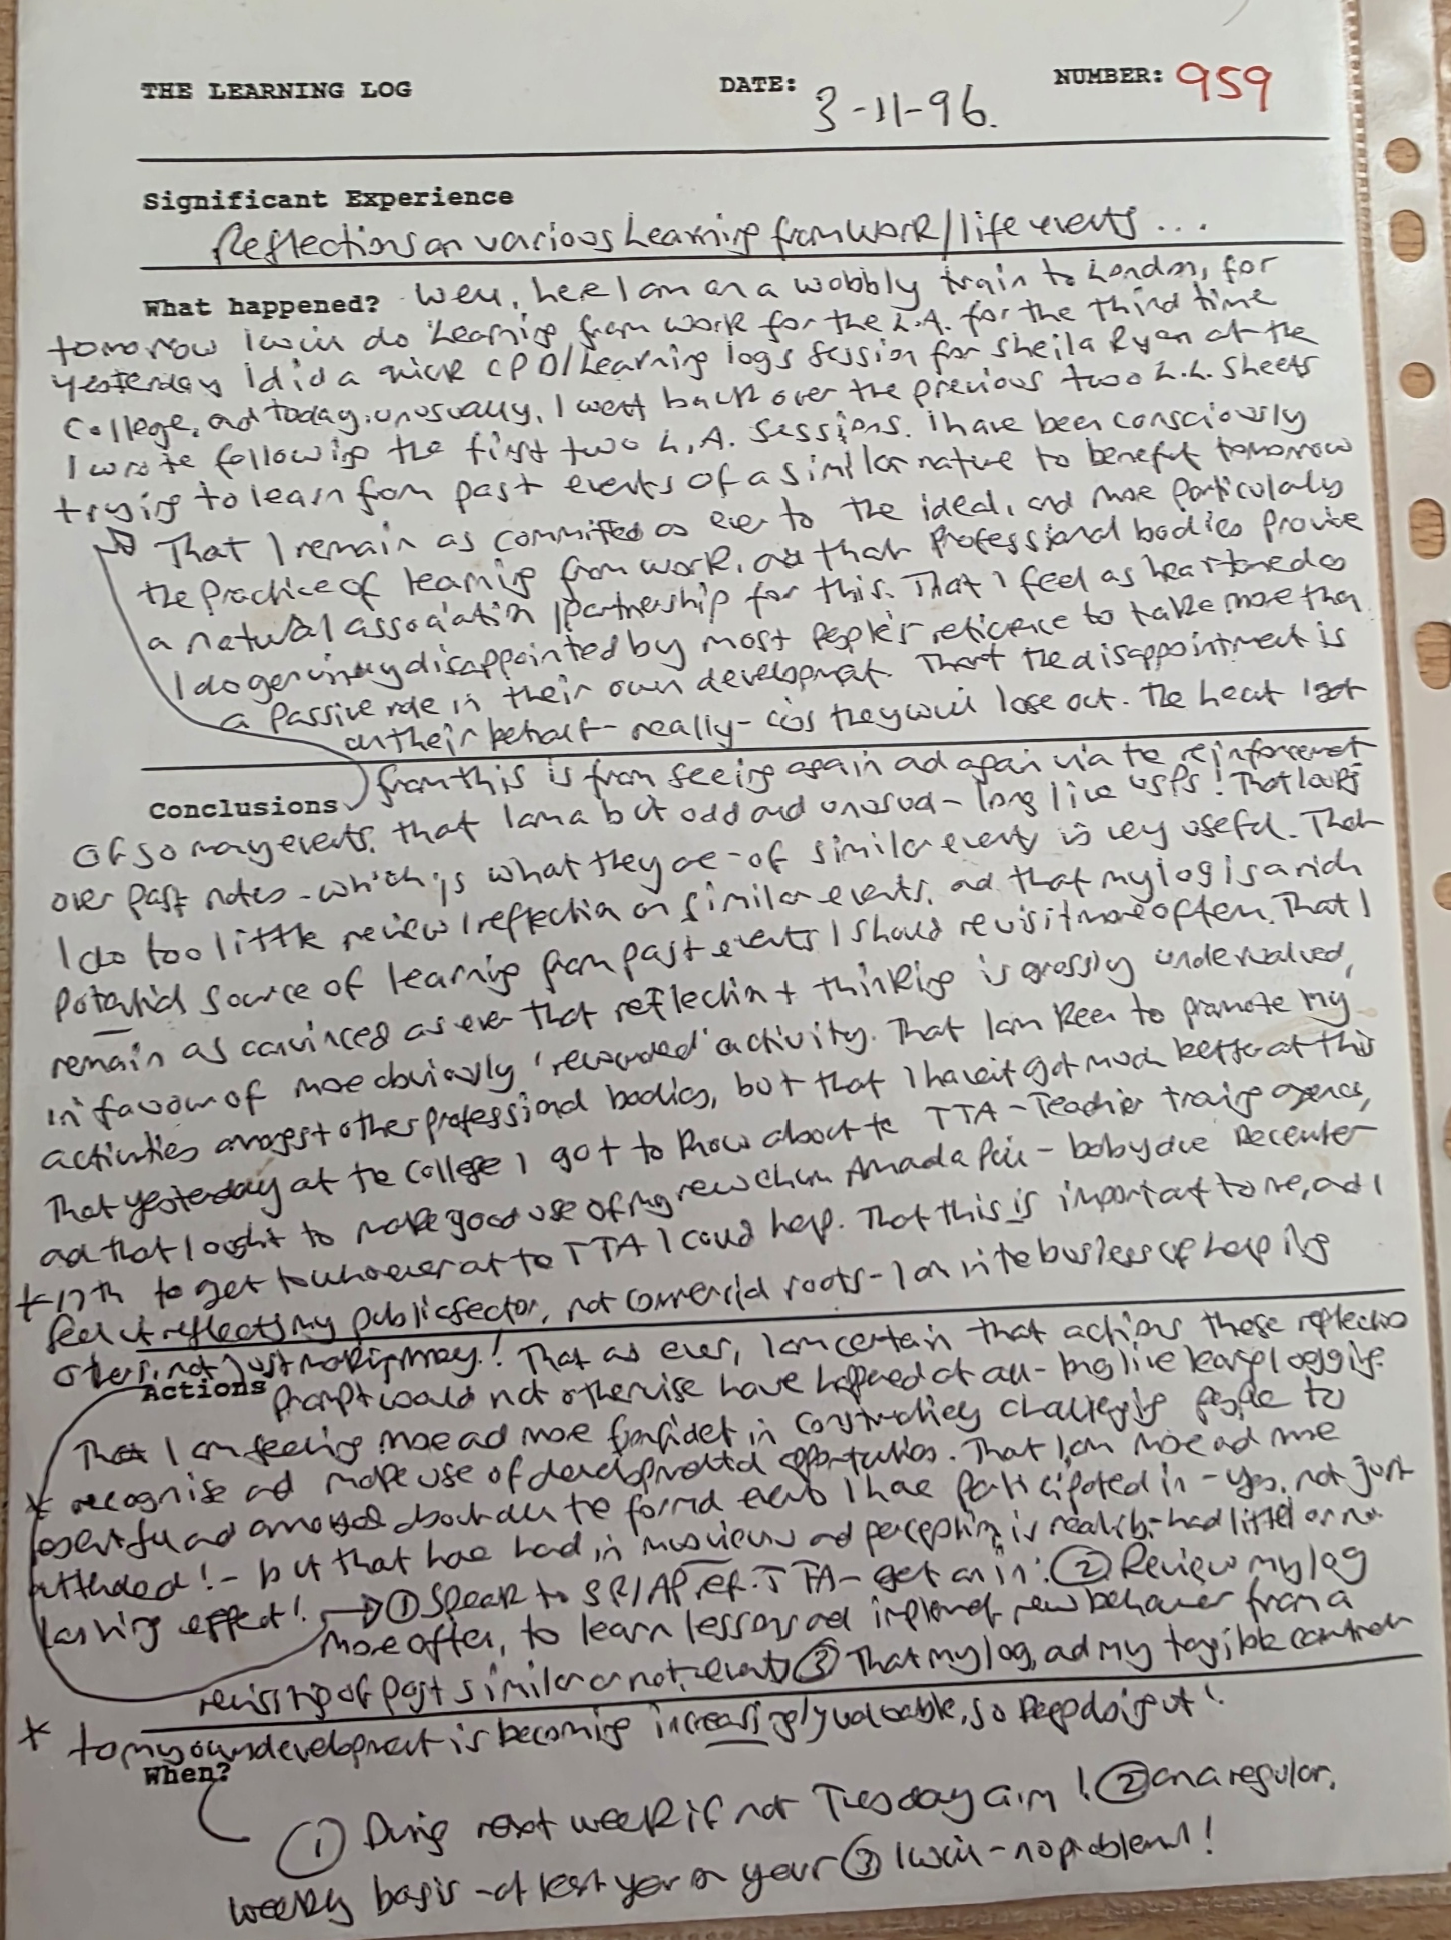 THE LEARNING LOG DATE: 3-11-96. NUMBER: 959
Significant Experience
Reflections on various Learning from Work/life events...
What happened? Well, here I am on a wobbly train to London, for
tomorrow I will do 'Learning from work for the L.A. for the third time
yesterday I did a quick CPD/Learning logs session for Sheila Ryan at the
College, and today, unusually, I went back over the previous two L.L. sheets
I wrote following the first two L.A. sessions. I have been consciously
trying to learn from past events of a similar nature to benefit tomorrow
That I remain as committed as ever to the ideal, and more particularly
the practice of learning from work, and that professional bodies provide
a natural association/partnership for this. That I feel as heartened as
I do genuinely disappointed by most people's reticence to take more than
a passive role in their own development. That the disappointment is
on their behalf - really - cos they will lose out. The heart I get
Conclusions from this is from seeing again and again via the reinforcement
of so many events, that I am a bit odd and unusual - long live USPs! That looking
over past notes - which is what they are - of similar events is very useful. That
I do too little review/reflection on similar events, and that my log is a rich
potential source of learning from past events I should revisit more often. That I
remain as convinced as ever that reflection + thinking is grossly undervalued,
in favour of more obviously 'rewarded' activity. That I am keen to promote my
activities amongst other professional bodies, but that I haven't got much better at this
That yesterday at the College I got to know about the TTA - Teacher training agency,
and that I ought to make good use of my new chum Amanda - baby due December
17th to get to whoever at the TTA I could help. That this is important to me, and I
feel it reflects my public sector, not commercial roots - I am in the business of helping
others, not just making money! That as ever, I am certain that actions these reflections
Actions prompt would not otherwise have happened at all - long live learning logging.
That I am feeling more and more confident in constructively challenging people to
* recognise and make use of developmental opportunities. That I am more and more
resentful and annoyed about all the formal events I have participated in - yes, not just
attended! - but that have had, in my view and perception is reality - had little or no
lasting effect! → ① Speak to SR/AP ref. TTA - get an in. ② Review my log
more often, to learn lessons and implement new behaviour from a
revisiting of past similar or not, events ③ That my log, and my tangible contribution
* to my own development is becoming increasingly valuable, so keep doing it!
When?
① During next week if not Tuesday a.m! ② on a regular,
weekly basis - at least year on year ③ I will - no problem!